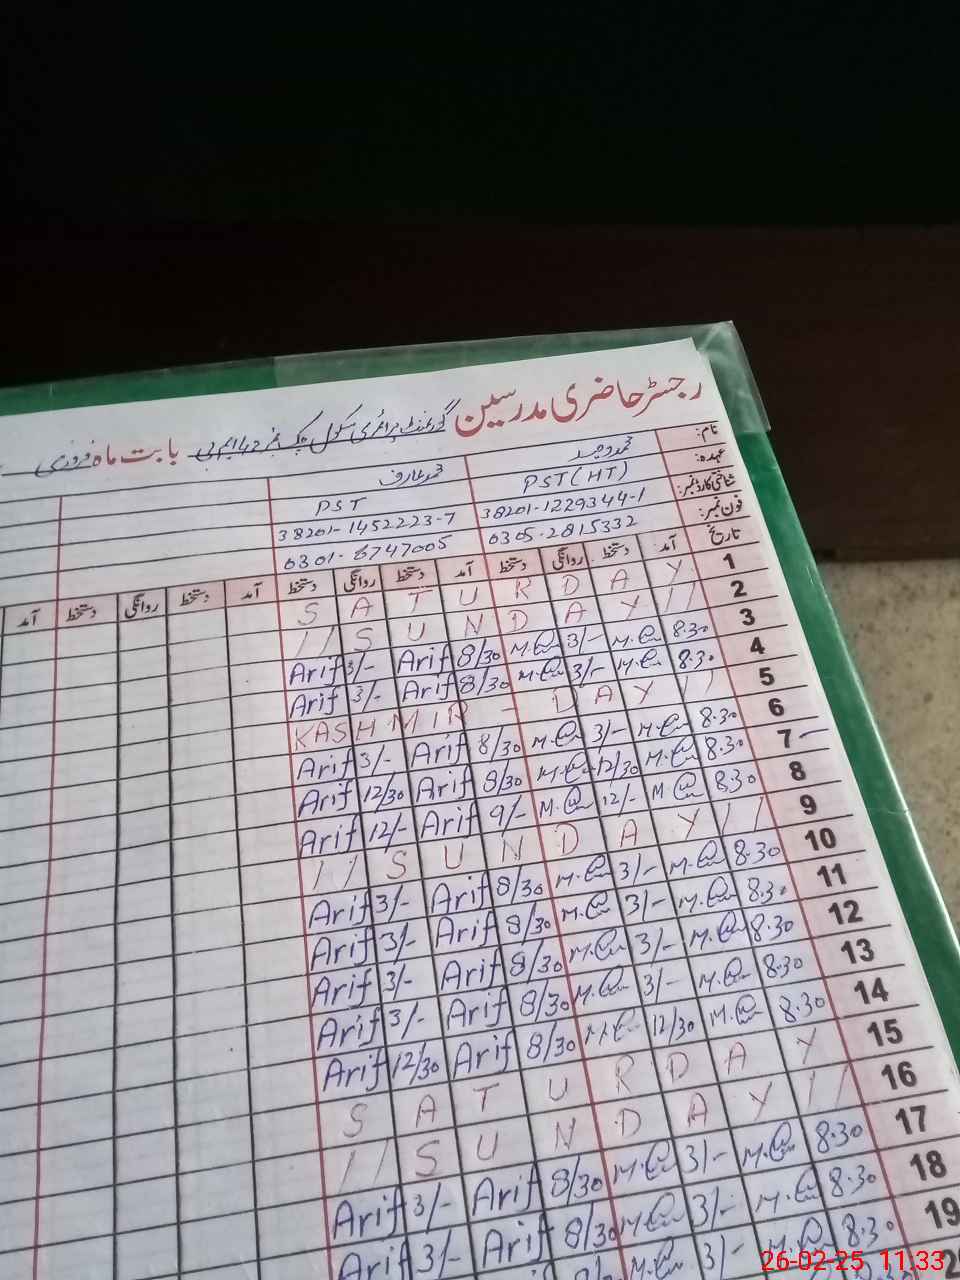 رجسٹر حاضری مدرسین گورنمنٹ پرائمری سکول چک نمبر 42 ایم بی بابت ماہ فروری
نام: محمد وحید محمد عارف
عہدہ: PST (HT) PST
شناختی کارڈ نمبر: 38201-1229344-1 38201-1452223-7
فون نمبر: 0305-2815332 0301-8747005
تاریخ آمد دستخط روانگی دستخط آمد دستخط روانگی دستخط آمد دستخط روانگی دستخط آمد
1 SATURDAY
2 // SUNDAY //
3 8.30 3/- 8/30 Arif 3/- Arif
4 8.30 3/- 8/30 Arif 3/- Arif
5 KASHMIR - DAY //
6 8.30 3/- 8/30 Arif 3/- Arif
7 8.30 12/30 8/30 Arif 12/30 Arif
8 8.30 12/- 9/- Arif 12/- Arif
9 // SUNDAY //
10 8.30 3/- 8/30 Arif 3/- Arif
11 8.30 3/- 8/30 Arif 3/- Arif
12 8.30 3/- 8/30 Arif 3/- Arif
13 8.30 3/- 8/30 Arif 3/- Arif
14 8.30 12/30 8/30 Arif 12/30 Arif
15 SATURDAY
16 // SUNDAY //
17 8.30 3/- 8/30 Arif 3/- Arif
18 8.30 3/- 8/30 Arif 3/- Arif
19 8.30 3/-
26-02-25 11:33